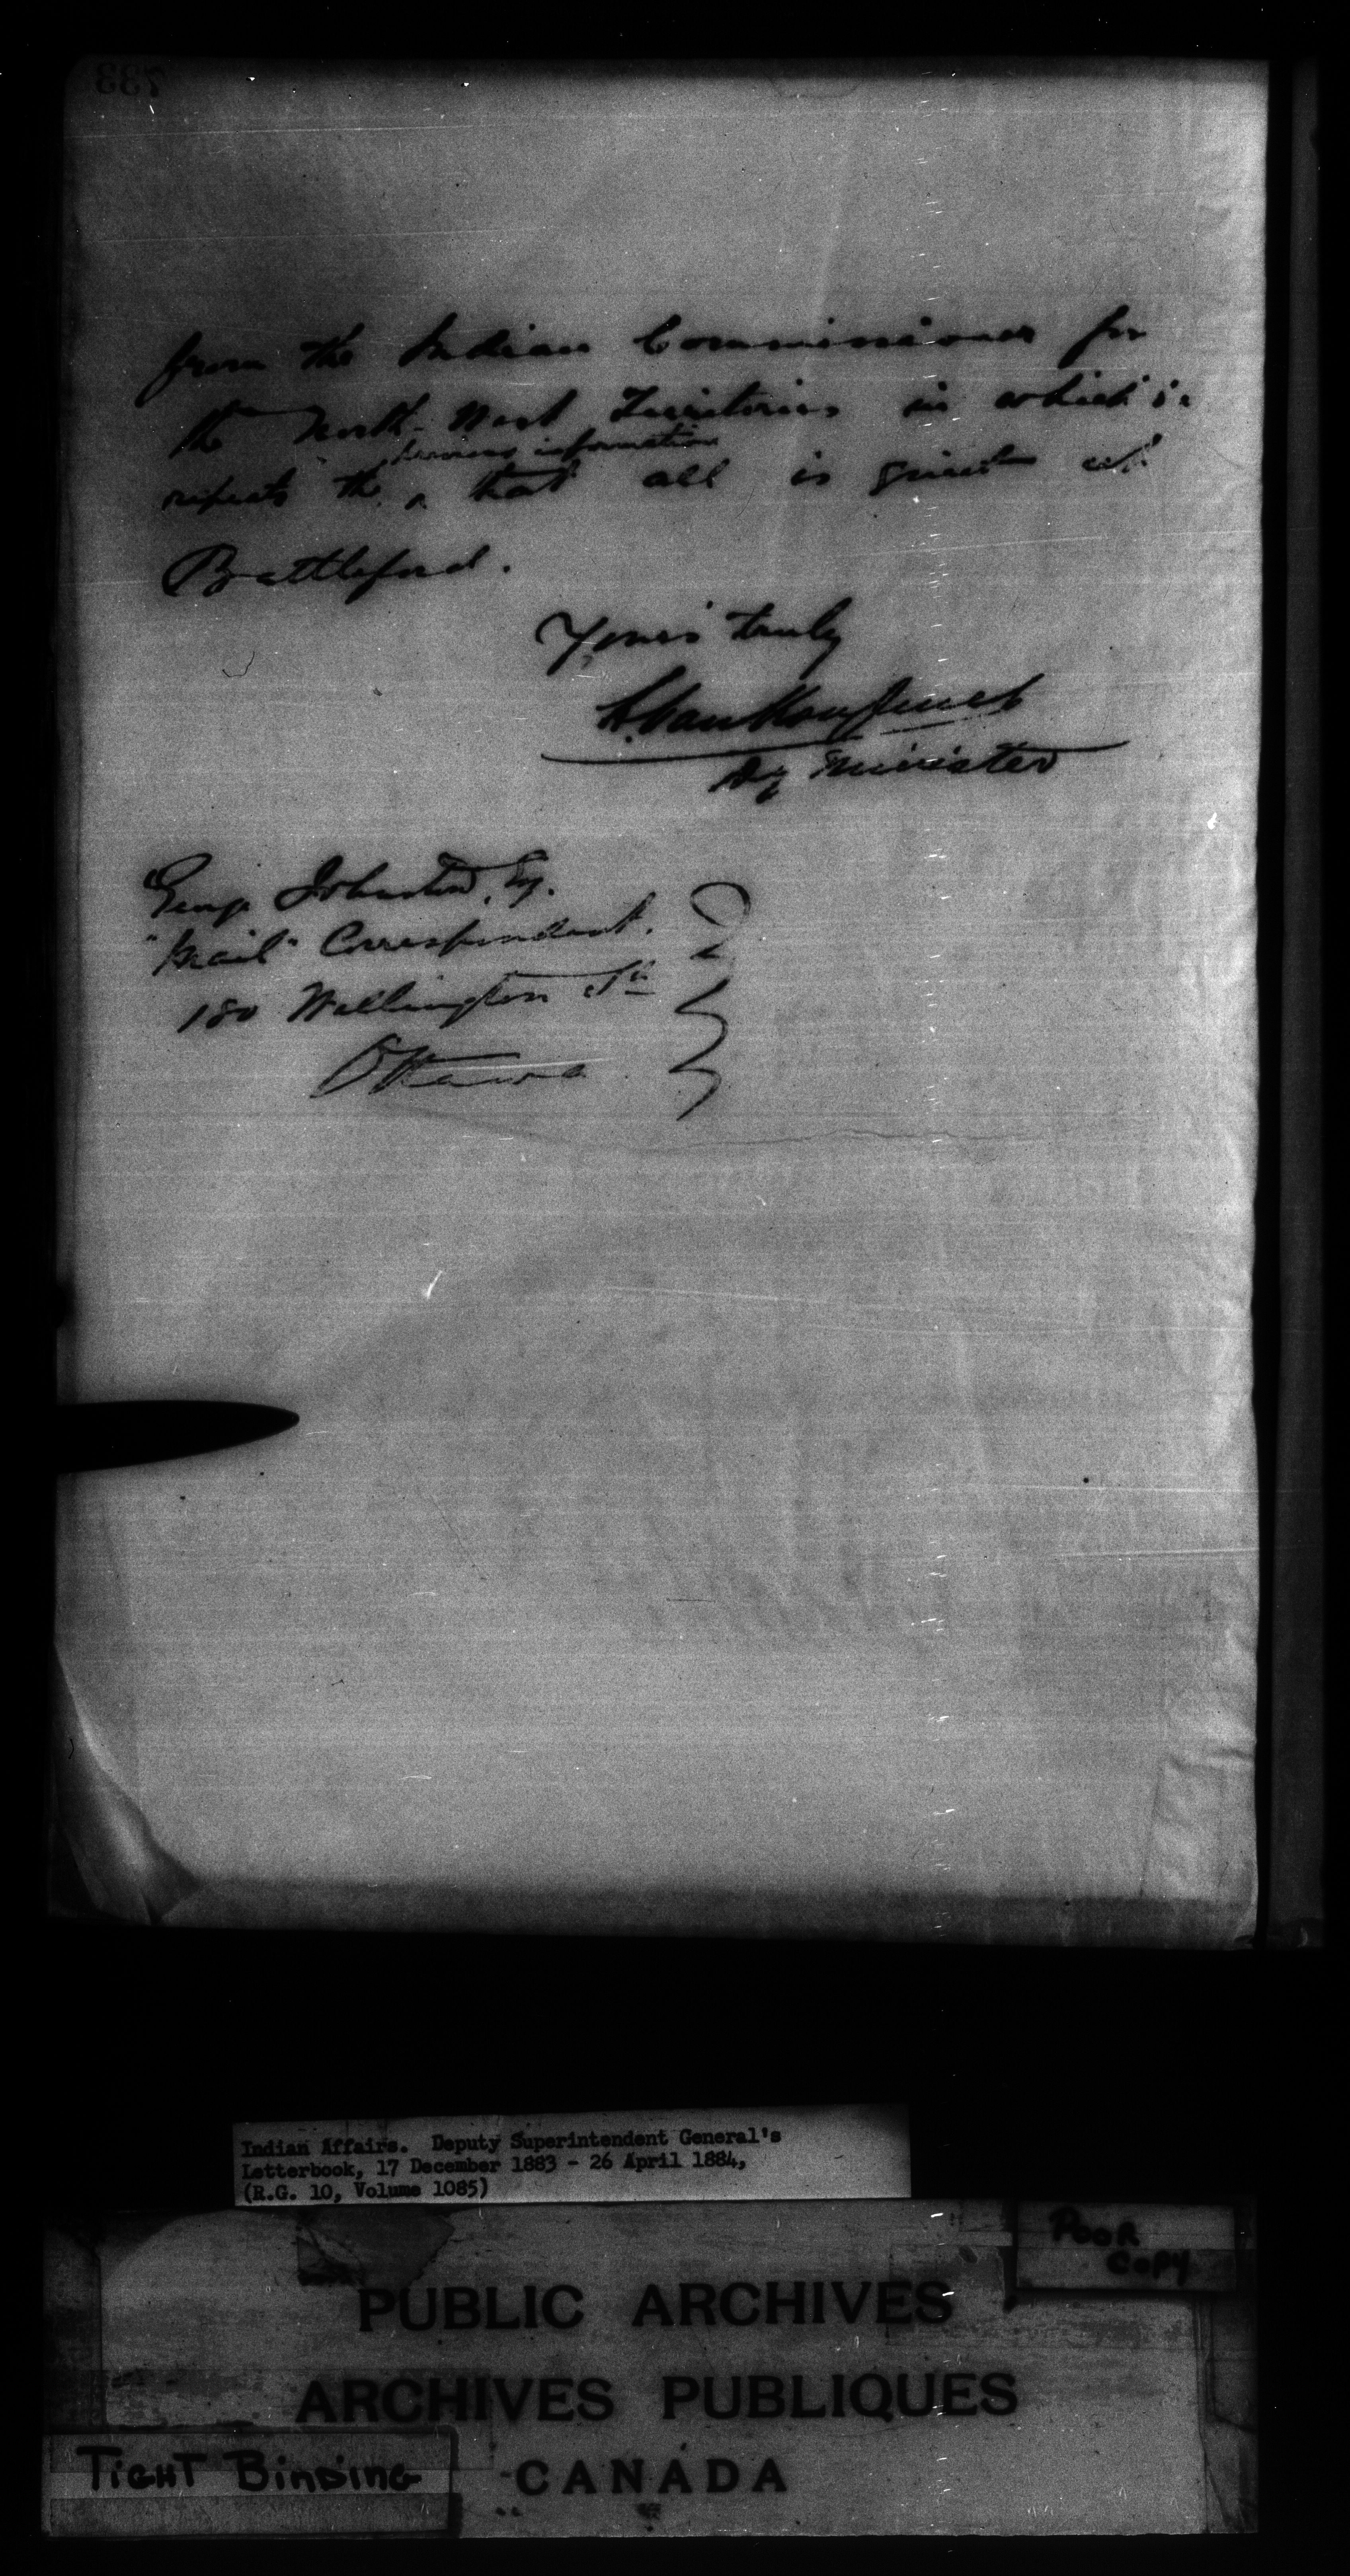 733
from the Indian Commissioner for
the North-West Territories in which he
previous information
repeats the ^ that all is quiet at
Battleford.
Yours truly
L. Vankoughnet
Dy Minister
George Johnston, Esq.
"Mail" Correspondent.
180 Wellington St.
Ottawa.
Indian Affairs. Deputy Superintendent General's
Letterbook, 17 December 1883 - 26 April 1884,
(R.G. 10, Volume 1085)
POOR
COPY
PUBLIC ARCHIVES
ARCHIVES PUBLIQUES
TIGHT BINDING
CANADA